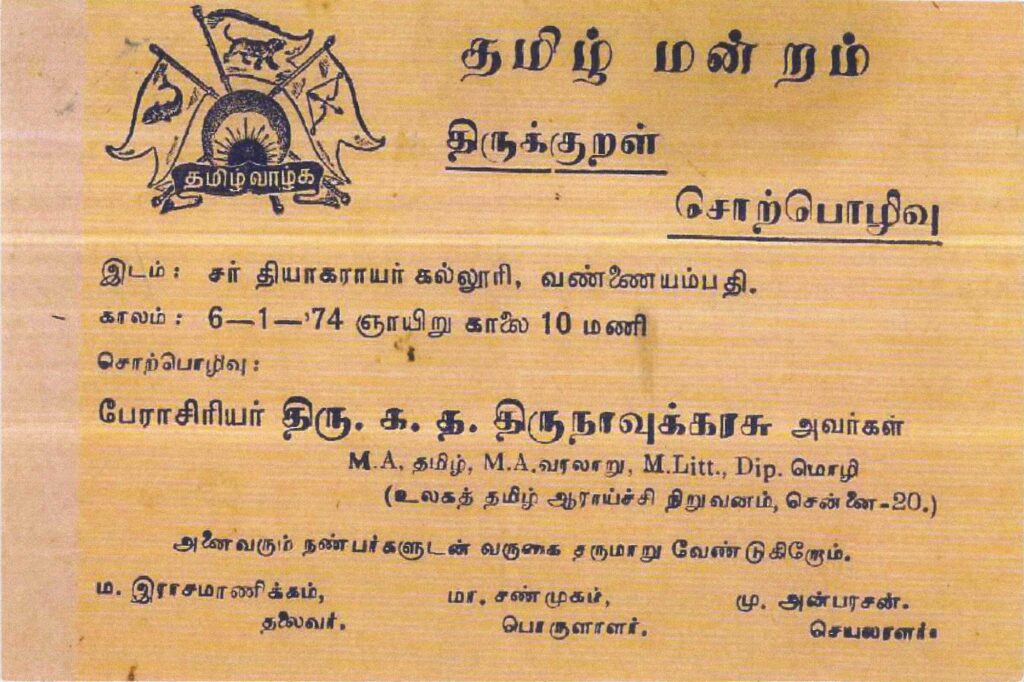 தமிழ் மன்றம்
தமிழ் வாழ்க
திருக்குறள்
சொற்பொழிவு
இடம் : சர் தியாகராயர் கல்லூரி, வண்ணையம்பதி.
காலம் : 6—1—'74 ஞாயிறு காலை 10 மணி
சொற்பொழிவு :
பேராசிரியர் திரு. க. த. திருநாவுக்கரசு அவர்கள்
M.A, தமிழ், M.A. வரலாறு, M.Litt., Dip. மொழி
(உலகத் தமிழ் ஆராய்ச்சி நிறுவனம், சென்னை-20.)
அனைவரும் நண்பர்களுடன் வருகை தருமாறு வேண்டுகிறோம்.
ம. இராசமாணிக்கம், மா. சண்முகம், மு. அன்பரசன்.
தலைவர். பொருளாளர். செயலாளர்.